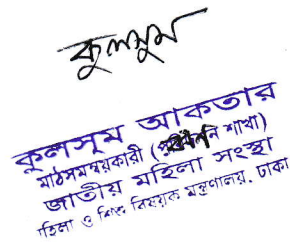 কুলসুম
কুলসুম আকতার
মাঠসমন্বয়কারী ( শাখা)
জাতীয় মহিলা সংস্থা
মহিলা ও শিশু বিষয়ক মন্ত্রণালয়, ঢাকা